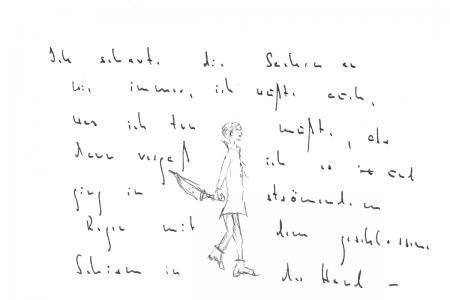 Ich schaute die Sachen an
wie immer, ich wußte auch,
was ich tun mußte, als
dann vergaß ich es und
ging in strömendem
Regen mit dem geschlossenen
Schirm in der Hand –